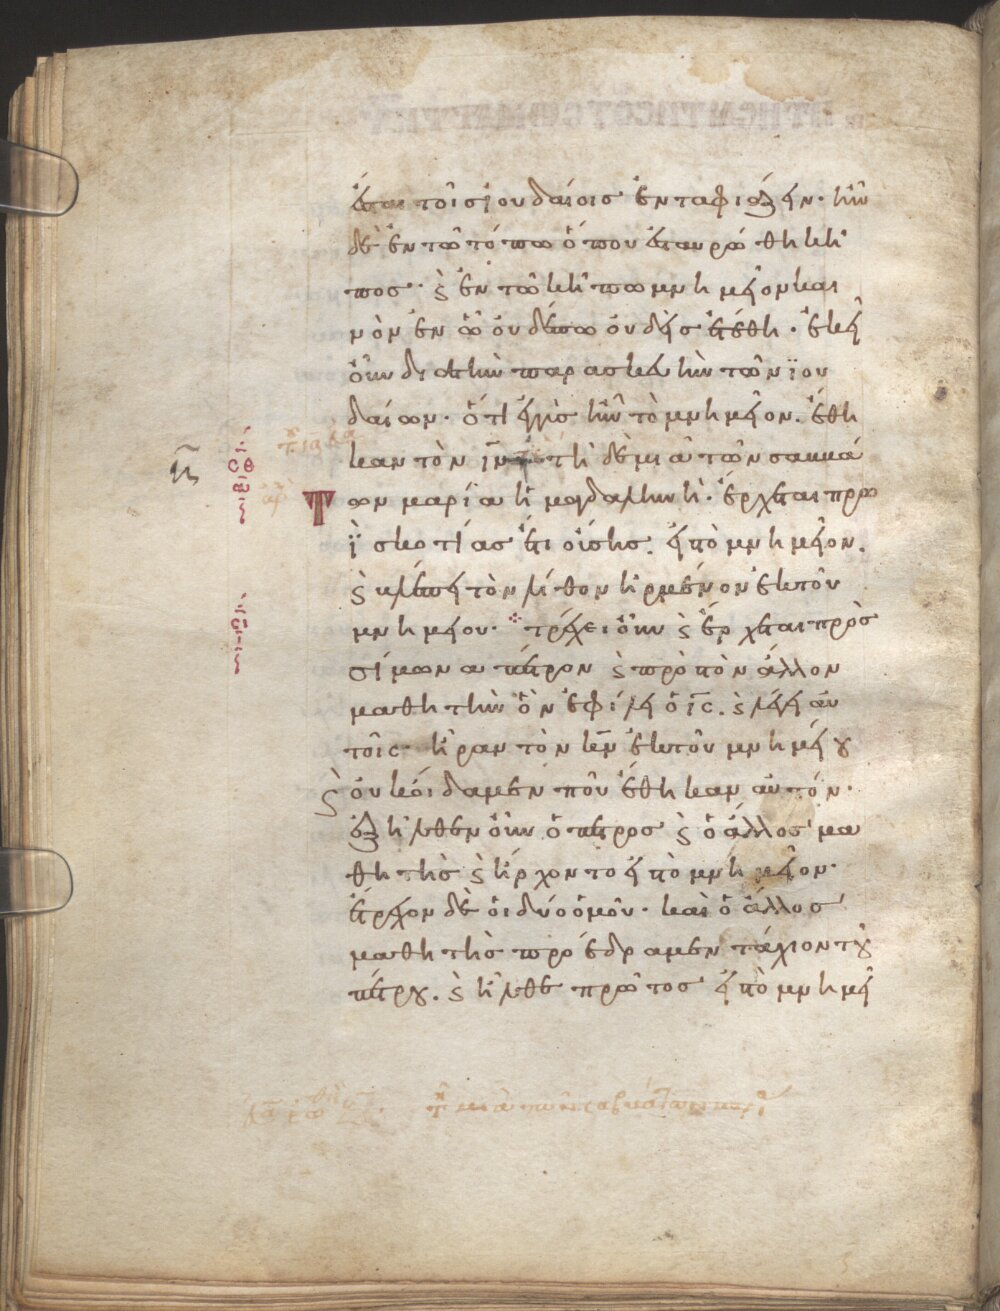 ἐστι τοῖς ἰουδαίοις ἐνταφιάζειν· ἦν
δὲ ἐν τῶ τόπω ὅπου ἐσταυρώθη κῆ
πος· ϛ ἐν τῶ κήπω μνημεῖον και
νὸν ἐν ὧ οὐδέπω οὐδεὶς ἐτέθη· ἐκεῖ
οὖν διὰ τὴν παρασκευὴν τῶν ϊου
δαίων· ὅτι ἐγγὺς ἦν τὸ μνημεῖον. ἔθη
καν τὸν ιν τῆ δὲ μιᾶ τῶν σαββά
Των μαρία ἡ μαγδαληνὴ· ἔρχεται πρω
ῒ σκοτίας ἔτι οὔσης. εἰς τὸ μνημεῖον.
ϛ βλέπει τὸν λίθον ἠρμένον ἐκ τοῦ
μνημείου· τρέχει οὖν ϛ ἔρχεται πρὸς
σίμωνα πέτρον ϛ πρὸς τὸν ἄλλον
μαθητὴν ὃν ἐφίλει ὁ ις. ϛ λέγει αὐ
τοῖς· ἦραν τὸν κν ἐκ τοῦ μνημείου
ϛ οὐκ οἴδαμεν ποῦ ἔθηκαν αὐτόν·
ἐξῆλθεν οὖν ὁ πέτρος ϛ ὁ ἄλλος μα
θητὴς ϛ ἤρχοντο εἰς τὸ μνημεῖον·
ἔτρεχον δὲ οἱ δύο ὁμοῦ· καὶ ὁ ἄλλος
μαθητὴς προέδραμεν τάχιον τοῦ
πέτρου. ϛ ἦλθε πρῶτος εἰς τὸ μνημεῖ